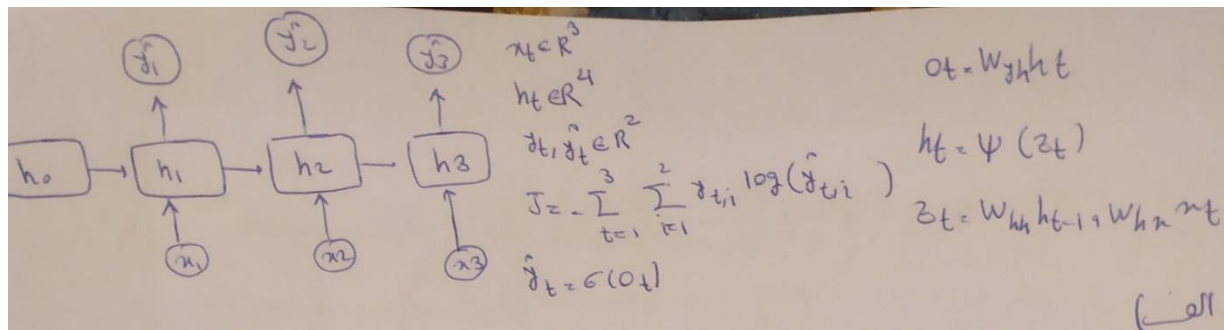 ŷ₁ ŷ₂ ŷ₃
h₀ h₁ h₂ h₃
x₁ x₂ x₃
xₜ ∈ R³
hₜ ∈ R⁴
yₜ, ŷₜ ∈ R²
J = - ∑_{t=1}^{3} ∑_{i=1}^{2} y_{t,i} log(ŷ_{t,i})
ŷₜ = σ(oₜ)
oₜ = W_{yh} hₜ
hₜ = ψ(zₜ)
zₜ = W_{hh} h_{t-1} + W_{hx} xₜ
الف)